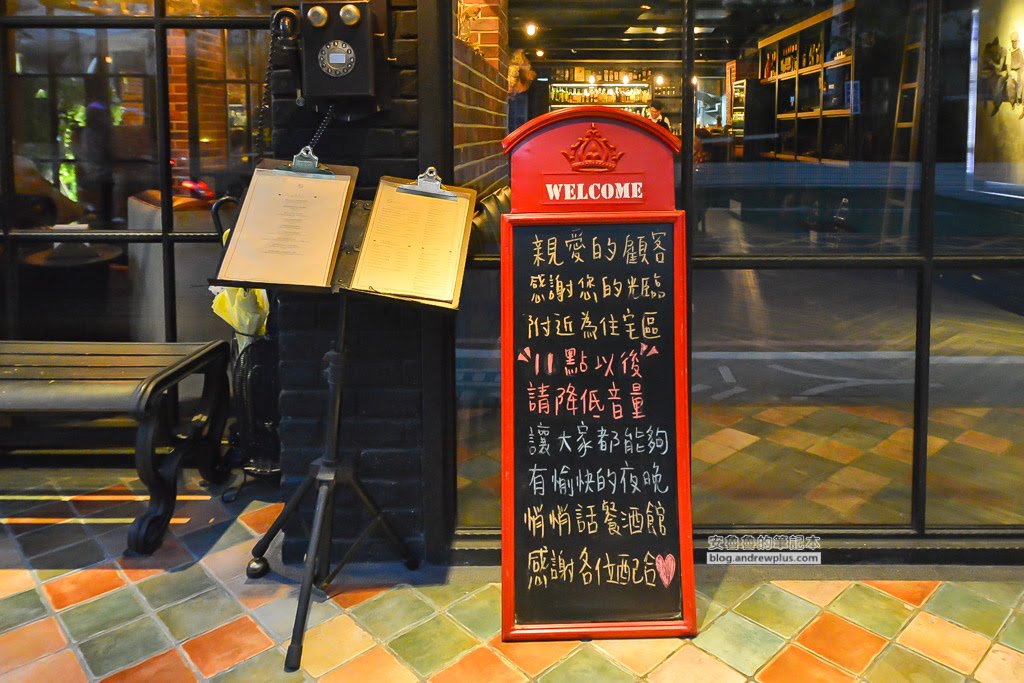 WELCOME
親愛的顧客
感謝您的光臨
附近為住宅區
"11點以後"
請降低音量
讓大家都能夠
有愉快的夜晚
悄悄話餐酒館
感謝各位配合
安魯魯的筆記本
blog.andrewplus.com